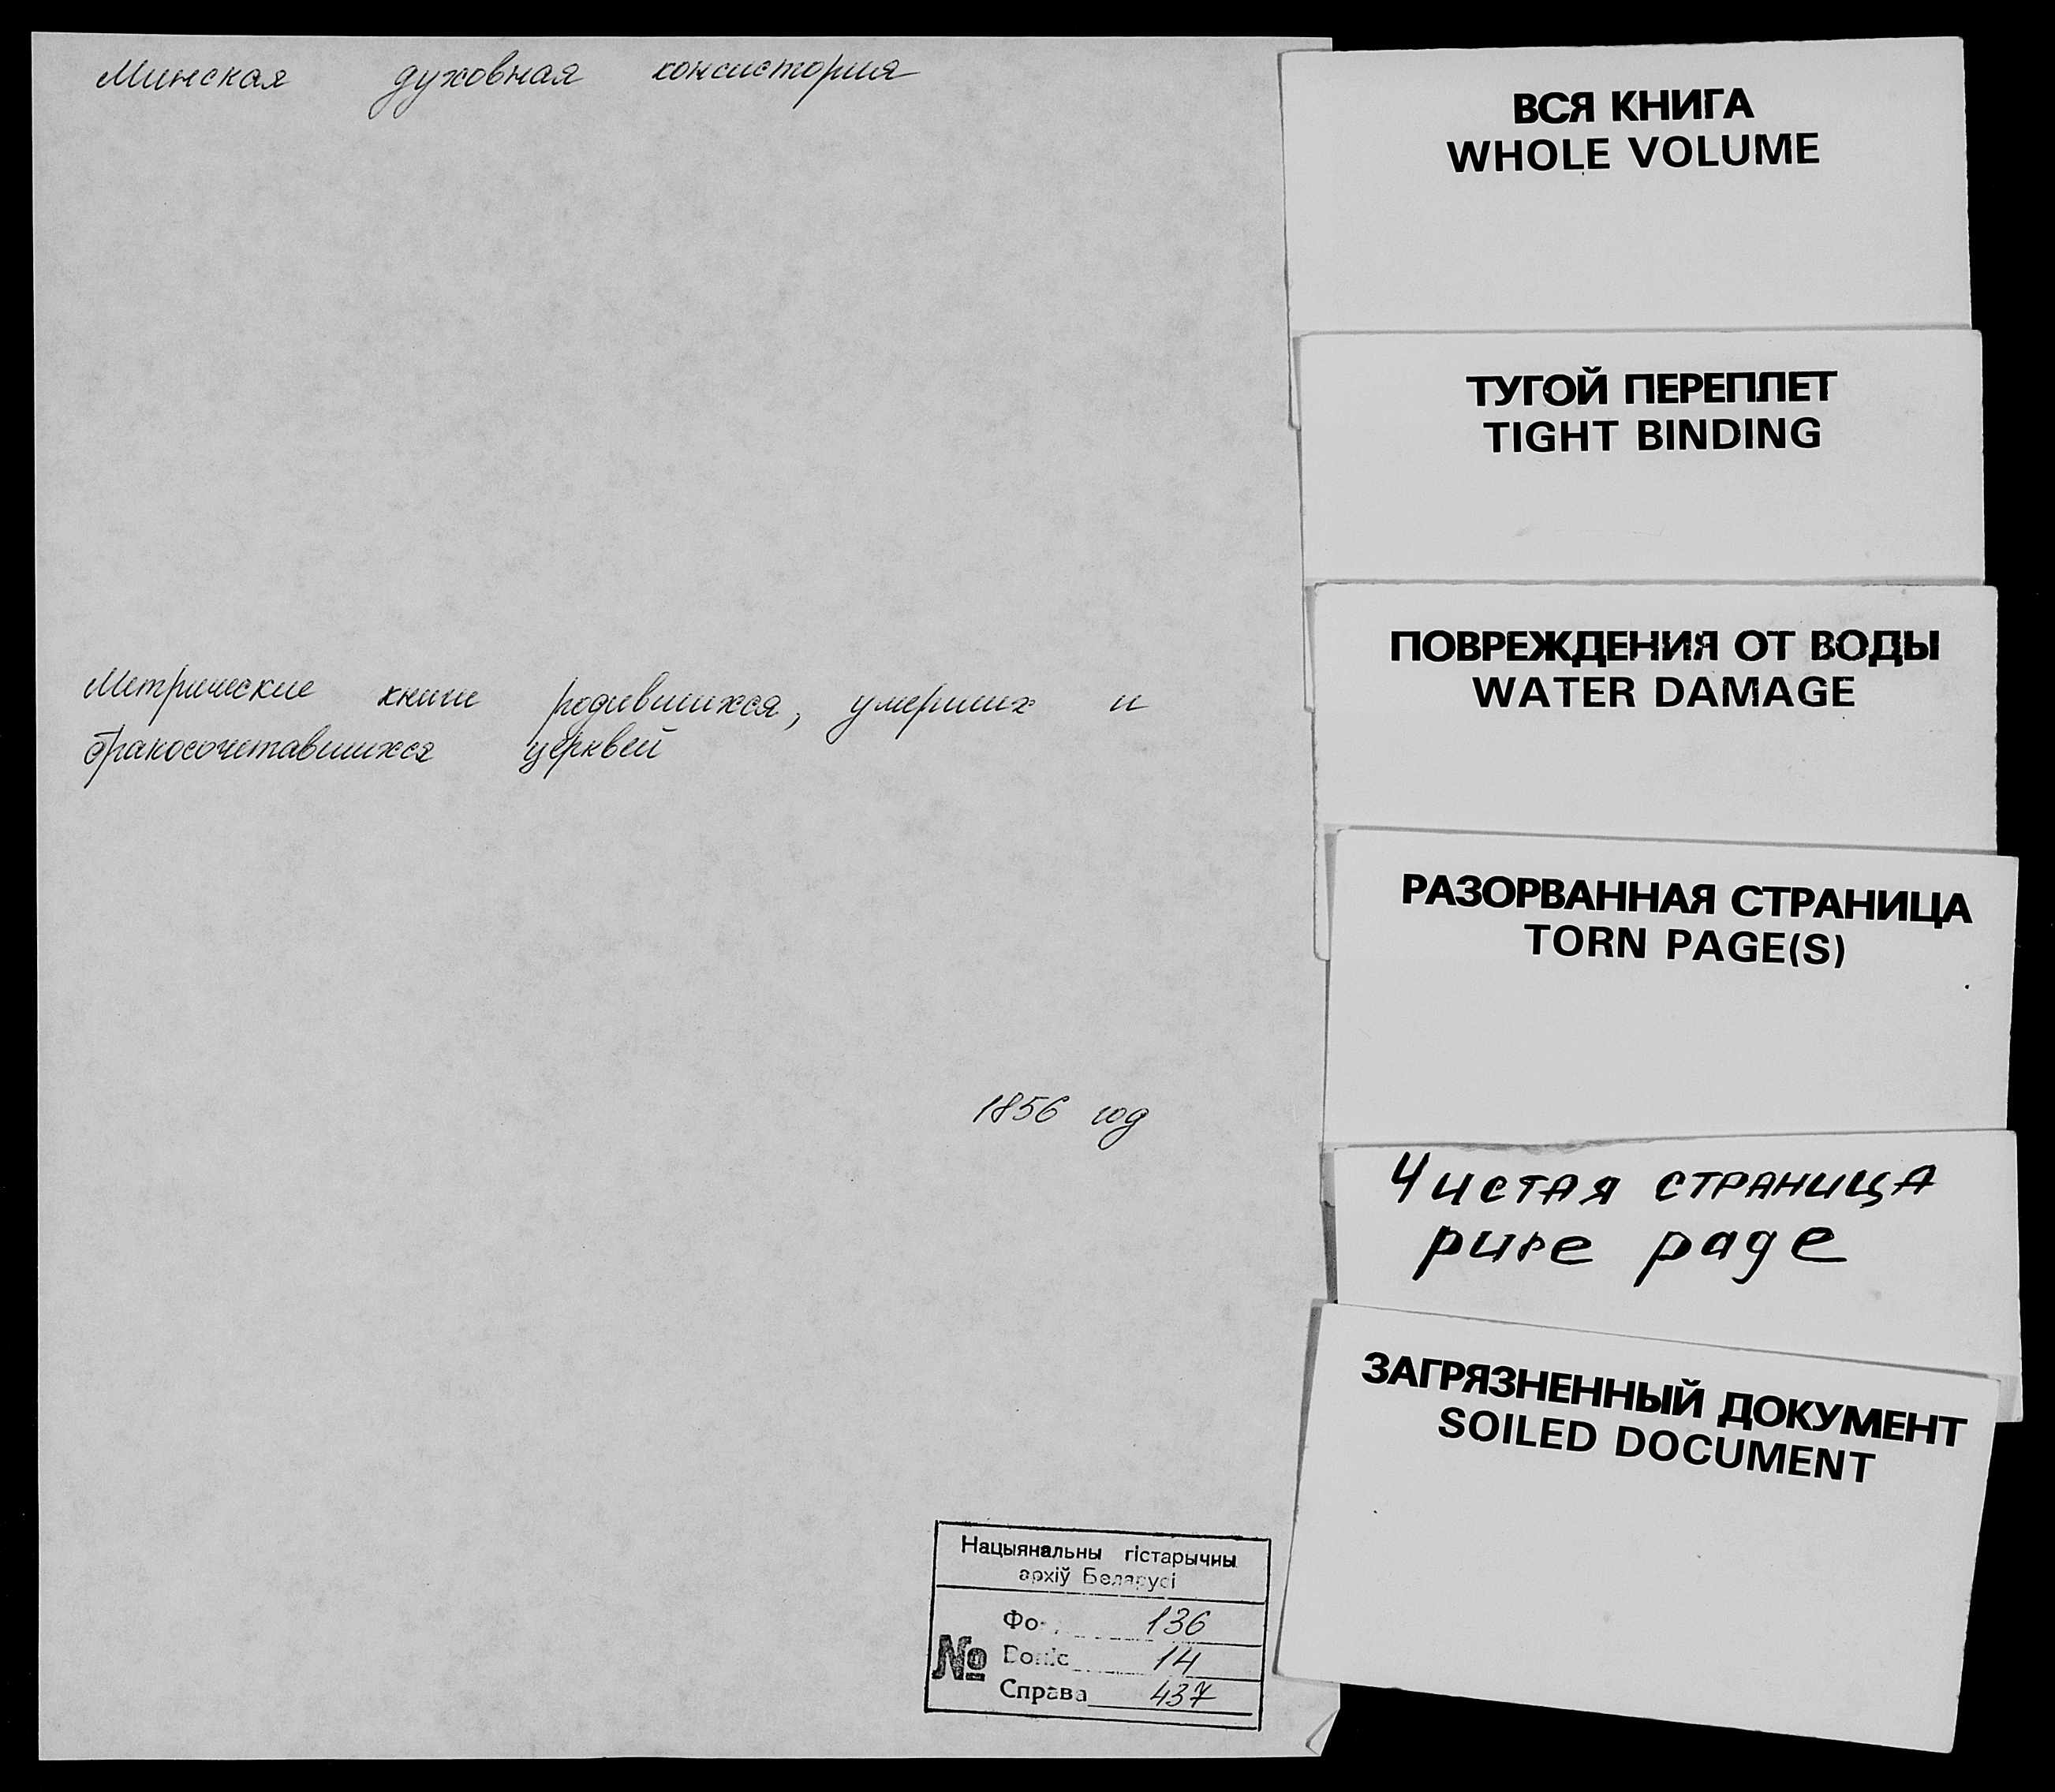 Минская духовная консистория
Метрические книги родившихся, умерших и
бракосочетавшихся церквей
1856 год
Нацыянальны гістарычны
архіў Беларусі
№
Фо 136
Вопіс 14
Справа 437
ВСЯ КНИГА
WHOLE VOLUME
ТУГОЙ ПЕРЕПЛЕТ
TIGHT BINDING
ПОВРЕЖДЕНИЯ ОТ ВОДЫ
WATER DAMAGE
РАЗОРВАННАЯ СТРАНИЦА
TORN PAGE(S)
Чистая страница
pure page
ЗАГРЯЗНЕННЫЙ ДОКУМЕНТ
SOILED DOCUMENT